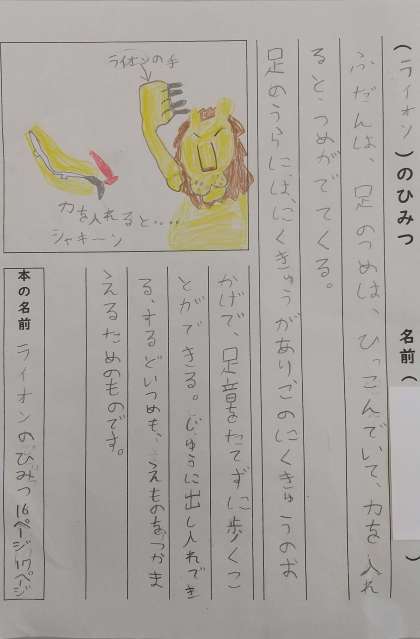 (ライオン)のひみつ 名前( )
ふだんは、足のつめは、ひっこんでいて、力を入れ
ると、つめがでてくる。
足のうらには、にくきゅうがありこのにくきゅうのお
かげで、足音をたてずに歩くこ
とができる。じゆうに出し入れでき
る、するどいつめも、えものをつかま
えるためのものです。
ライオンの手
力を入れると・・・・
シャキーン
本の名前 ライオンのひみつ16ページ17ページ